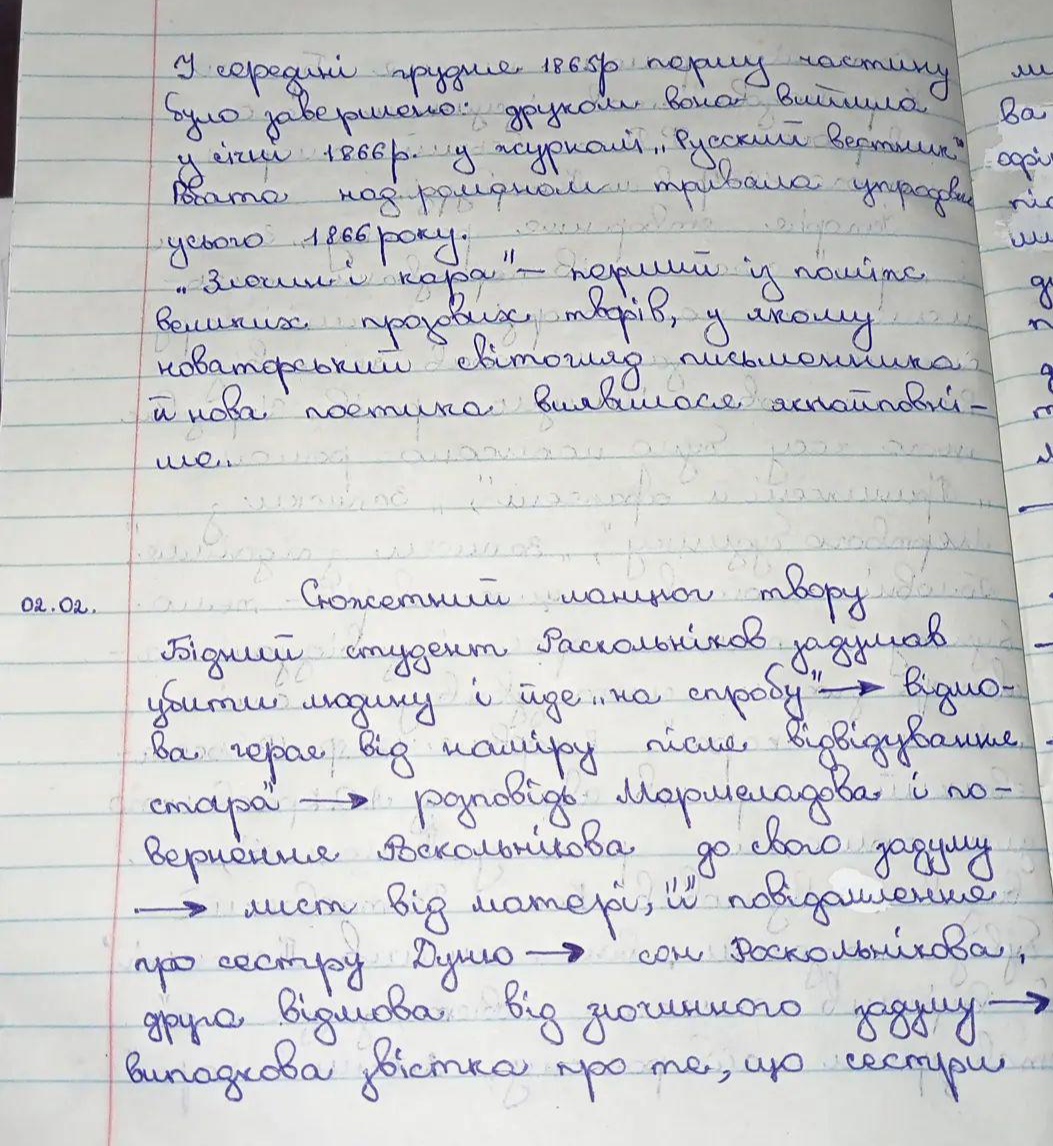 У середині грудня 1865р першу частину
було завершено: друком вона вийшла
у січні 1866р. у журналі „Русский вестник"
Робота над романом тривала упродовж
усього 1866 року.
„Злочин і кара" – перший із п'яти
великих прозових творів, у якому
новаторський світогляд письменника
й нова поетика виявилася якнайповні-
ше.
02.02. Сюжетний ланцюг твору
Бідний студент Раскольніков задумав
убити людину і йде „на спробу" → відмо-
ва героя від наміру після відвідування
старої → розповідь Мармеладова і по-
вернення Раскольнікова до свого задуму
→ лист від матері, її повідомлення
про сестру Дуню → сон Раскольнікова,
друга відмова від злочинного задуму →
випадкова звістка про те, що сестри